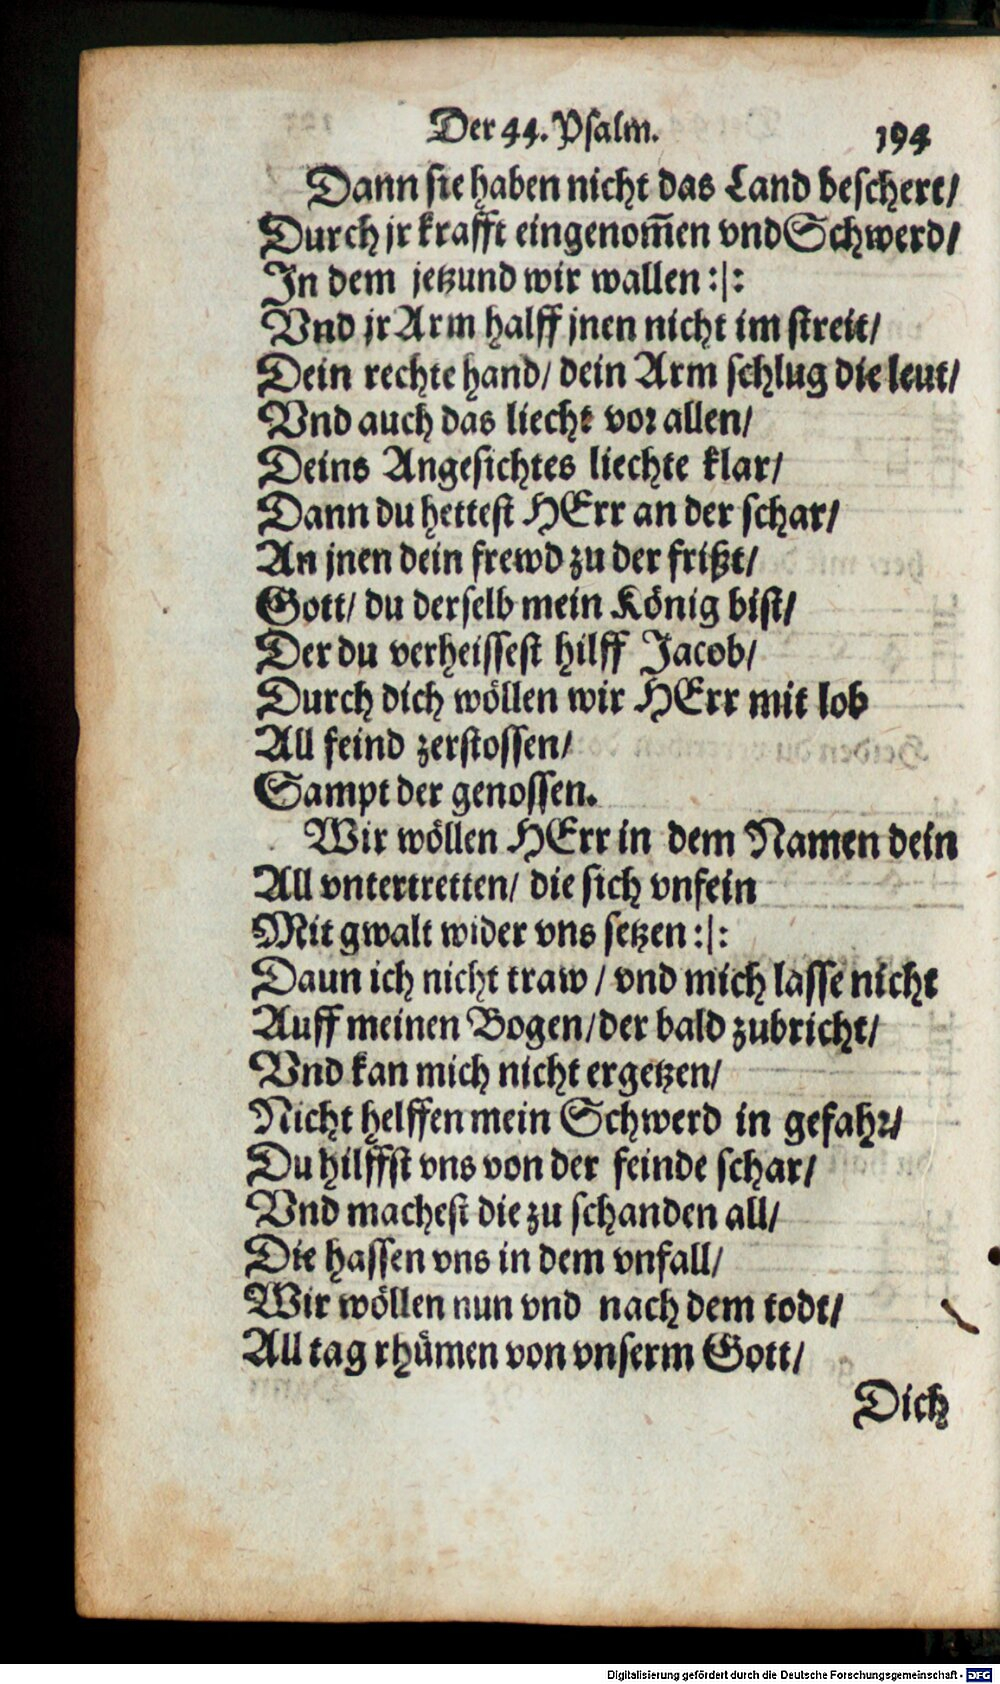 Der 44. Psalm. 194
Dann sie haben nicht das Land beschert/
Durch jr krafft eingenom̃en vnd Schwerd/
In dem jetzund wir wallen :|:
Vnd jr Arm halff jnen nicht im streit/
Dein rechte hand/ dein Arm schlug die leut/
Vnd auch das liecht vor allen/
Deins Angesichtes liechte klar/
Dann du hettest HErr an der schar/
An jnen dein frewd zu der frißt/
Gott/ du derselb mein König bist/
Der du verheissest hilff Jacob/
Durch dich wöllen wir HErr mit lob
All feind zerstossen/
Sampt der genossen.
Wir wöllen HErr in dem Namen dein
All vntertretten/ die sich vnfein
Mit gwalt wider vns setzen :|:
Daun ich nicht traw / vnd mich lasse nicht
Auff meinen Bogen/der bald zubricht/
Vnd kan mich nicht ergetzen/
Nicht helffen mein Schwerd in gefahr/
Du hilffst vns von der feinde schar/
Vnd machest die zu schanden all/
Die hassen vns in dem vnfall/
Wir wöllen nun vnd nach dem todt/
All tag rhümen von vnserm Gott/
Dich
Digitalisierung gefördert durch die Deutsche Forschungsgemeinschaft - DFG